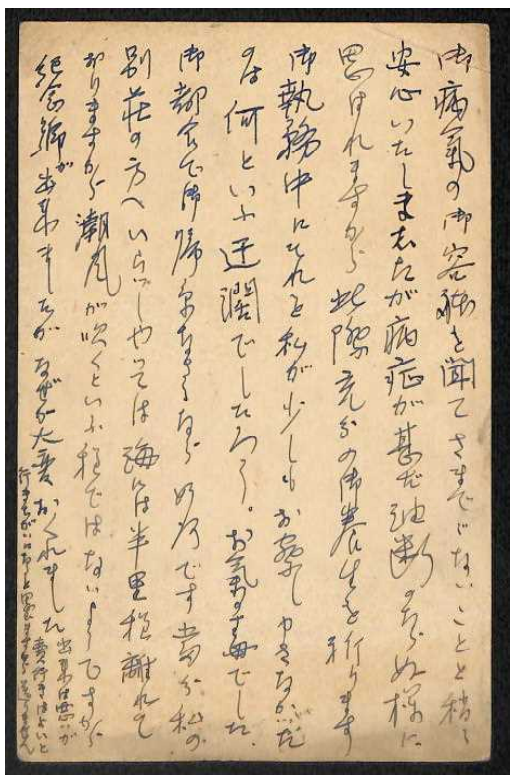 御病氣の御容躰を聞てさまでじないことと稍々
安心いたしましたが病症が甚だ油断のならぬ様に
思はれますから此際充分の御養生を祈ります
御執務中にそれと私が少しもお察し申さなかった
のは何といふ迂濶でしたろう。お気の毒でした。
御都合で御帰京なさるなら如何です当分私の
別荘の方へいらっしやっては海には半里程離れて
おりますから潮風が吹くといふ程ではないようですから
紀念綿が出来ましたがなぜか大変おくれました
出来は悪いが
賣行きはよいと
思ひます